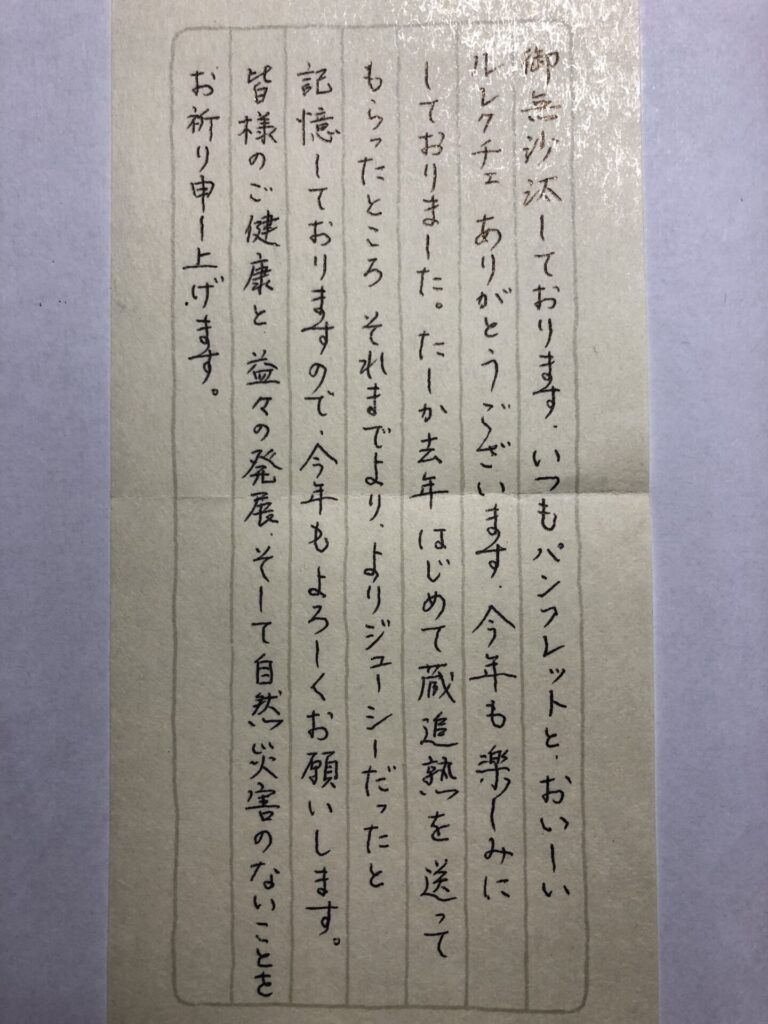 御無沙汰しております。いつもパンフレットと、おいしい
ルレクチェ ありがとうございます。今年も楽しみに
しておりました。たしか去年 はじめて蔵追熟を送って
もらったところ それまでより、よりジューシーだったと
記憶しておりますので、今年もよろしくお願いします。
皆様のご健康と 益々の発展、そして自然災害のないことを
お祈り申し上げます。